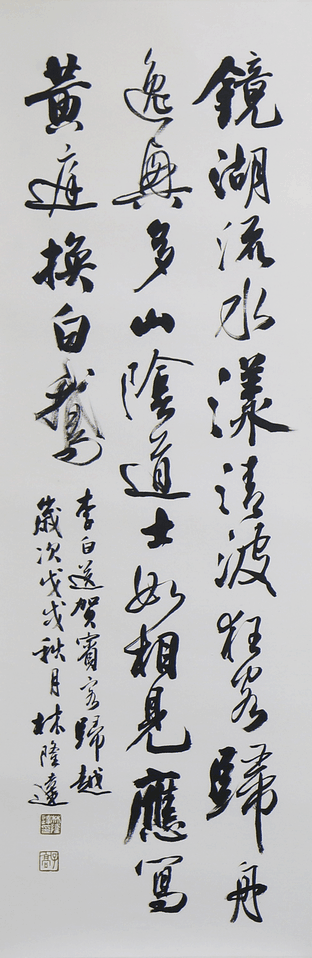 鏡湖流水漾清波狂客歸舟
逸興多山陰道士如相見應寫
黃庭換白鵝
李白送賀賓客歸越
歲次戊戌秋月林隆達